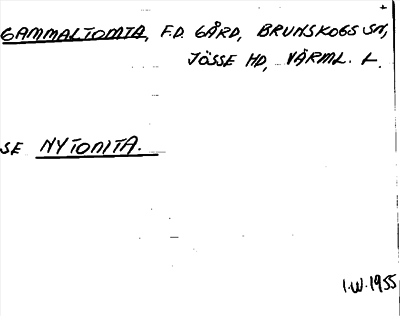 GAMMALTOMTA, F.D. GÅRD, BRUNSKOGS SN,
JÖSSE HD, VÄRML. L.
SE NYTOMTA.
I.W. 1955